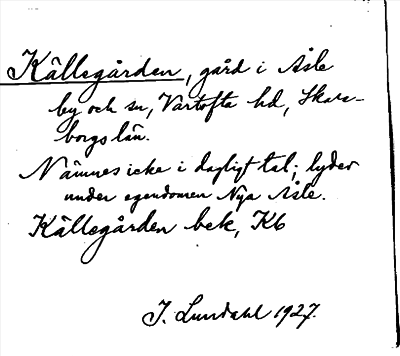 Källegården, gård i Åsle
by och sn, Vartofta hd, Skara-
borgs län.
Nämnes icke i dagligt tal; lyder
under egendomen Nya Åsle.
Källegården bek, K6
J. Lundahl 1927.